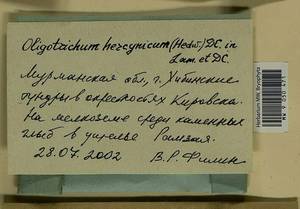 Oligotrichum hercynicum (Hedw.) DC. in
Lam. et DC.
Мурманская обл., г. Хибинские
тундры в окрестностях Кировска.
На мелкоземе среди каменных
глыб в ущелье Рамзая.
28.07.2002 В.Р. Филин
Herbarium MW, Bryophyta
MW 9 050 471